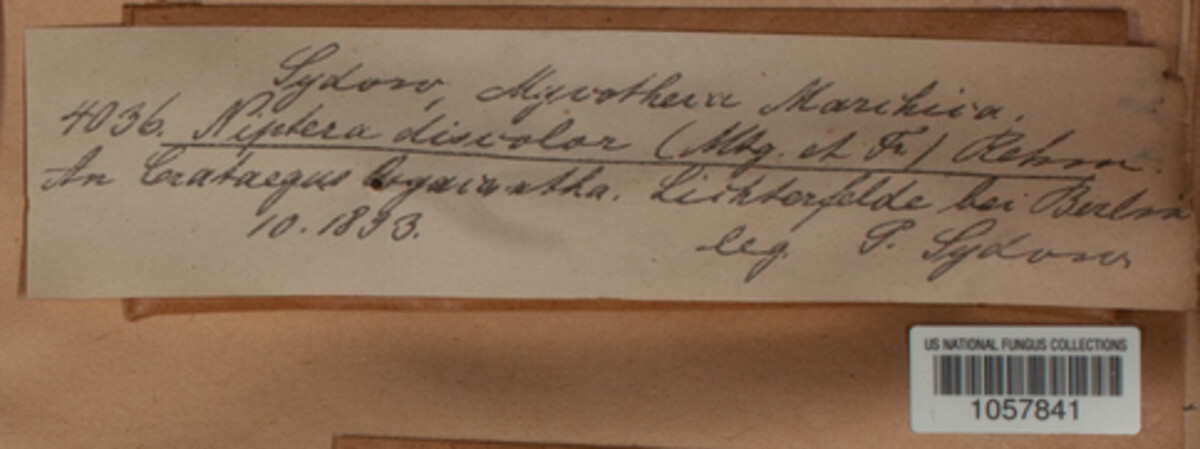 Sydow, Mycotheca Marchica.
4036. Niptera discolor (Mtg. et Fr.) Rehm.
An Crataegus Oxyacantha. Lichterfelde bei Berlin
10. 1893.
leg. P. Sydow
US NATIONAL FUNGUS COLLECTIONS
1057841